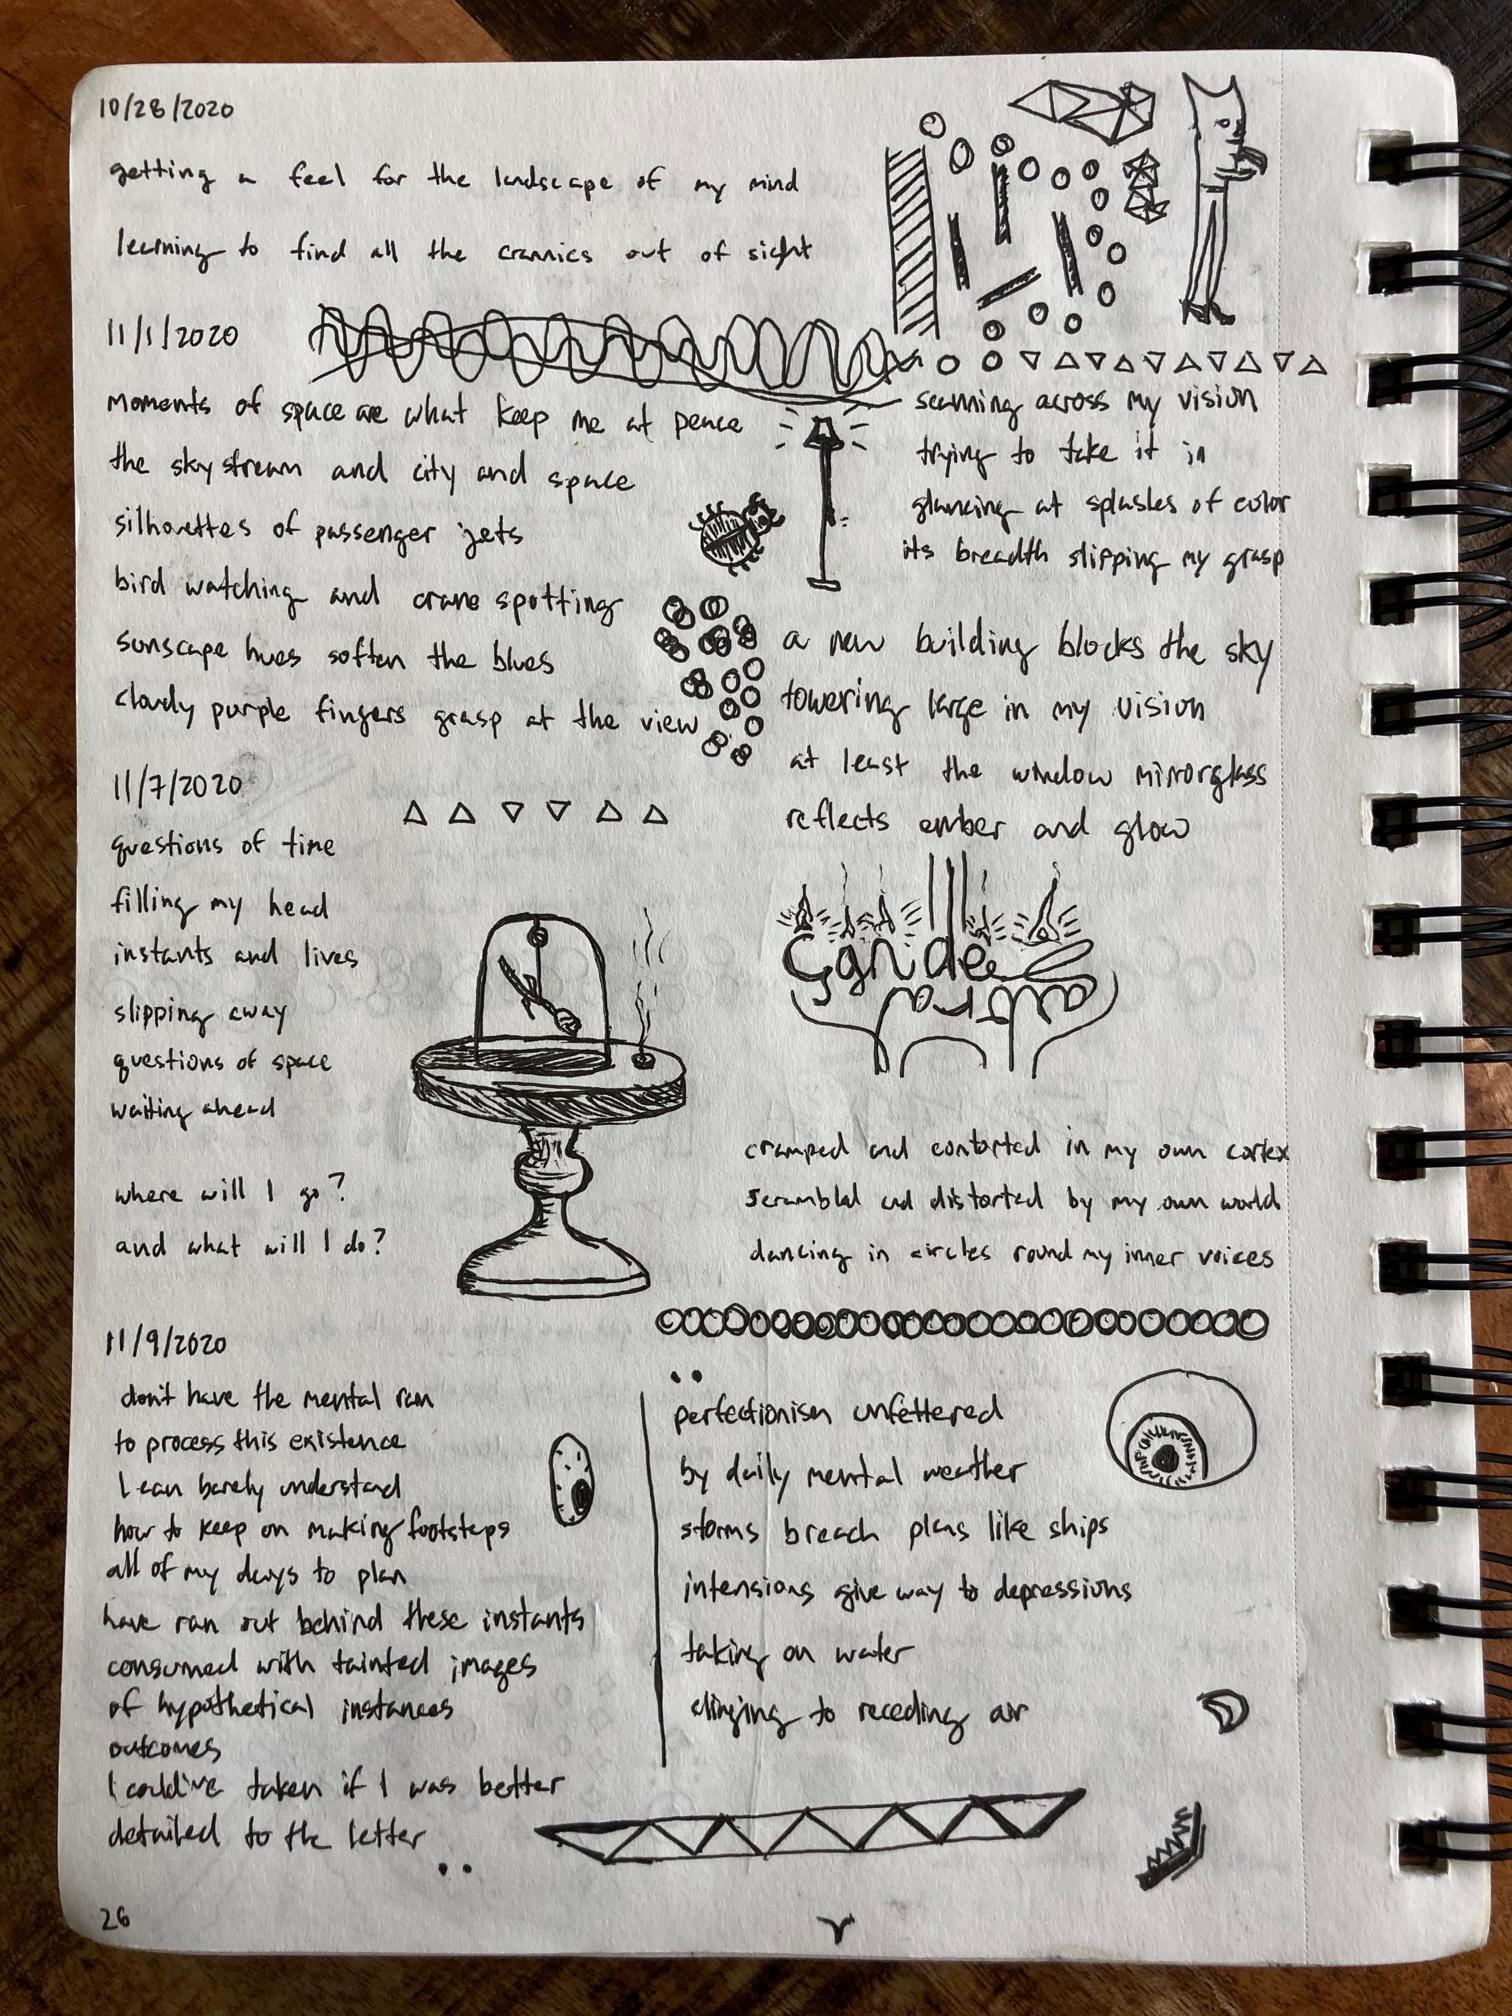 10/28/2020
getting a feel for the landscape of my mind
learning to find all the crannies out of sight
11/1/2020
moments of space are what keep me at peace
the sky stream and city and space
silhouettes of passenger jets
bird watching and crane spotting
sunscape hues soften the blues
cloudy purple fingers grasp at the view
scanning across my vision
trying to take it in
glancing at splashes of color
its breadth slipping my grasp
a new building blocks the sky
towering large in my vision
at least the window mirrorglass
reflects ember and glow
11/7/2020
questions of time
filling my head
instants and lives
slipping away
questions of space
waiting ahead
where will I go?
and what will I do?
cramped and contorted in my own cortex
scrambled and distorted by my own world
dancing in circles round my inner voices
11/9/2020
don't have the mental ram
to process this existence
I can barely understand
how to keep on making footsteps
all of my days to plan
have ran out behind these instants
consumed with tainted images
of hypothetical instances
outcomes
I could've taken if I was better
detailed to the letter
perfectionism unfettered
by daily mental weather
storms breach plans like ships
intensions give way to depressions
taking on water
clinging to receding air
26